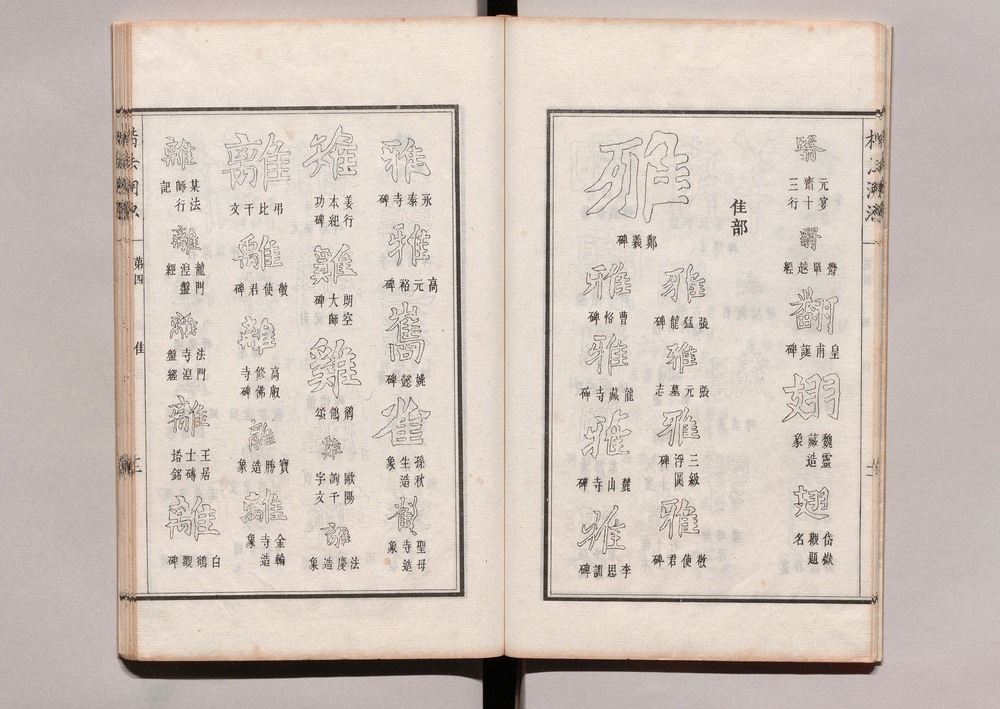 楷法溯源
翳
元宴齋十三行
翳
翻
皇甫誕碑
翅
魏靈藏造象
翅
岱嶽觀題名
隹部
雅
鄭義碑
雅
張猛龍碑
雅
張元墓志
雅
三級浮圖碑
雅
敬使君碑
雅
曹恪碑
雅
龍藏寺碑
雅
麓山寺碑
雅
李思訓碑
雅
永泰寺碑
雅
高元裕碑
巂
姚懿碑
雀
孫秋生造象
雀
聖母寺造象
雉
姜行本紀功碑
雞
朗空大師碑
雞
鶺鴒頌
雞
歐陽詢千字文
法慶造象
離
弔比干文
離
敬使君碑
離
高叡修佛寺碑
離
寶勝造象
離
金輪寺造象
離
某法師行記
離
龍門涅盤經
離
法門寺涅盤經
離
王居士磚塔銘
離
白鶴觀碑
楷法溯源 第四 隹 二